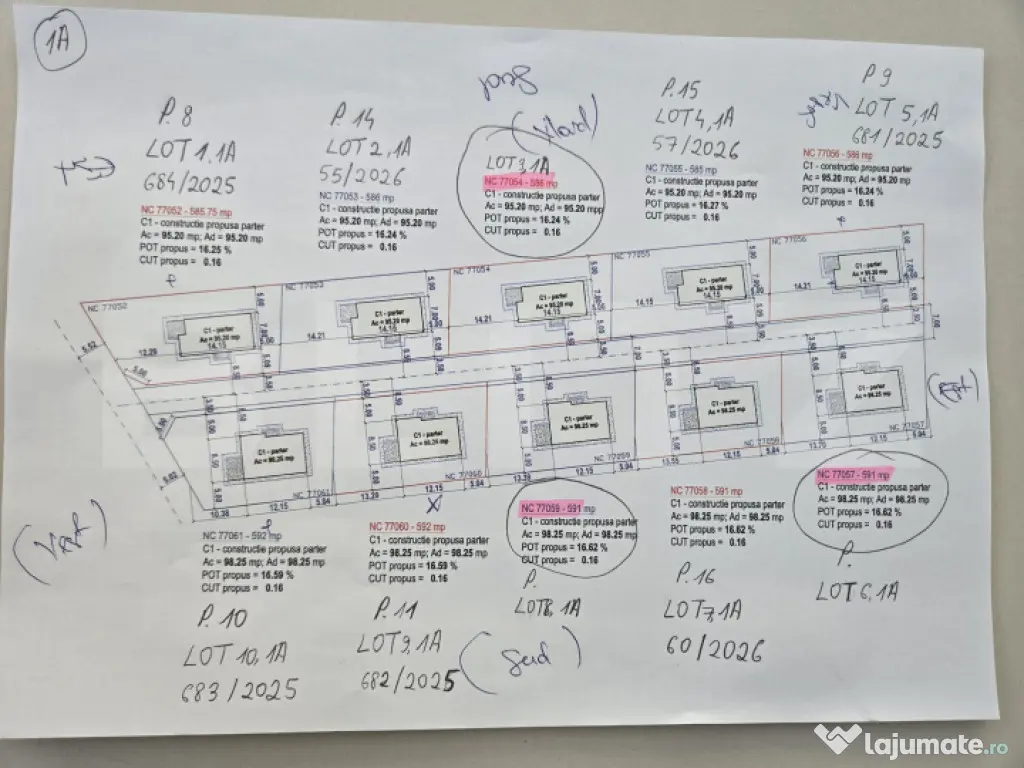 1A
P. 8
LOT 1, 1A
684/2025
NC 77052 - 585.75 mp
C1 - constructie propusa parter
Ac = 95.20 mp; Ad = 95.20 mp
POT propus = 16.25 %
CUT propus = 0.16
P. 14
LOT 2, 1A
55/2026
NC 77053 - 586 mp
C1 - constructie propusa parter
Ac = 95.20 mp; Ad = 95.20 mp
POT propus = 16.24 %
CUT propus = 0.16
LOT 3, 1A
NC 77054 - 586 mp
C1 - constructie propusa parter
Ac = 95.20 mp; Ad = 95.20 mpp
POT propus = 16.24 %
CUT propus = 0.16
P. 15
LOT 4, 1A
57/2026
NC 77055 - 585 mp
C1 - constructie propusa parter
Ac = 95.20 mp; Ad = 95.20 mp
POT propus = 16.27 %
CUT propus = 0.16
P 9
LOT 5, 1A
681/2025
NC 77056 - 586 mp
C1 - constructie propusa parter
Ac = 95.20 mp; Ad = 95.20 mp
POT propus = 16.24 %
CUT propus = 0.16
NC 77052
NC 77053
NC 77054
NC 77055
NC 77056
C1 - parter
Ac = 95.20 mp
14.15
C1 - parter
Ac = 95.20 mp
14.15
C1 - parter
Ac = 95.20 mp
14.15
C1 - parter
Ac = 95.20 mp
14.15
C1 - parter
Ac = 95.20 mp
14.15
14.21
14.21
14.15
14.21
C1 - parter
Ac = 98.25 mp
C1 - parter
Ac = 98.25 mp
C1 - parter
Ac = 98.25 mp
C1 - parter
Ac = 98.25 mp
C1 - parter
Ac = 98.25 mp
NC 77061
NC 77060
NC 77059
NC 77058
NC 77057
10.38
12.15
5.94
13.29
12.15
5.94
13.29
12.15
5.94
13.05
12.15
5.94
13.70
12.15
5.94
NC 77061 - 592 mp
C1 - constructie propusa parter
Ac = 98.25 mp; Ad = 98.25 mp
POT propus = 16.59 %
CUT propus = 0.16
P. 10
LOT 10, 1A
683/2025
NC 77060 - 592 mp
C1 - constructie propusa parter
Ac = 98.25 mp; Ad = 98.25 mp
POT propus = 16.59 %
CUT propus = 0.16
P. 11
LOT 9, 1A
682/2025
NC 77059 - 591 mp
C1 - constructie propusa parter
Ac = 98.25 mp; Ad = 98.25 mp
POT propus = 16.62 %
CUT propus = 0.16
P.
LOT 8, 1A
(Sud)
NC 77058 - 591 mp
C1 - constructie propusa parter
Ac = 98.25 mp; Ad = 98.25 mp
POT propus = 16.62 %
CUT propus = 0.16
P. 16
LOT 7, 1A
60/2026
NC 77057 - 591 mp
C1 - constructie propusa parter
Ac = 98.25 mp; Ad = 98.25 mp
POT propus = 16.62 %
CUT propus = 0.16
P.
LOT 6, 1A
lajumate.ro